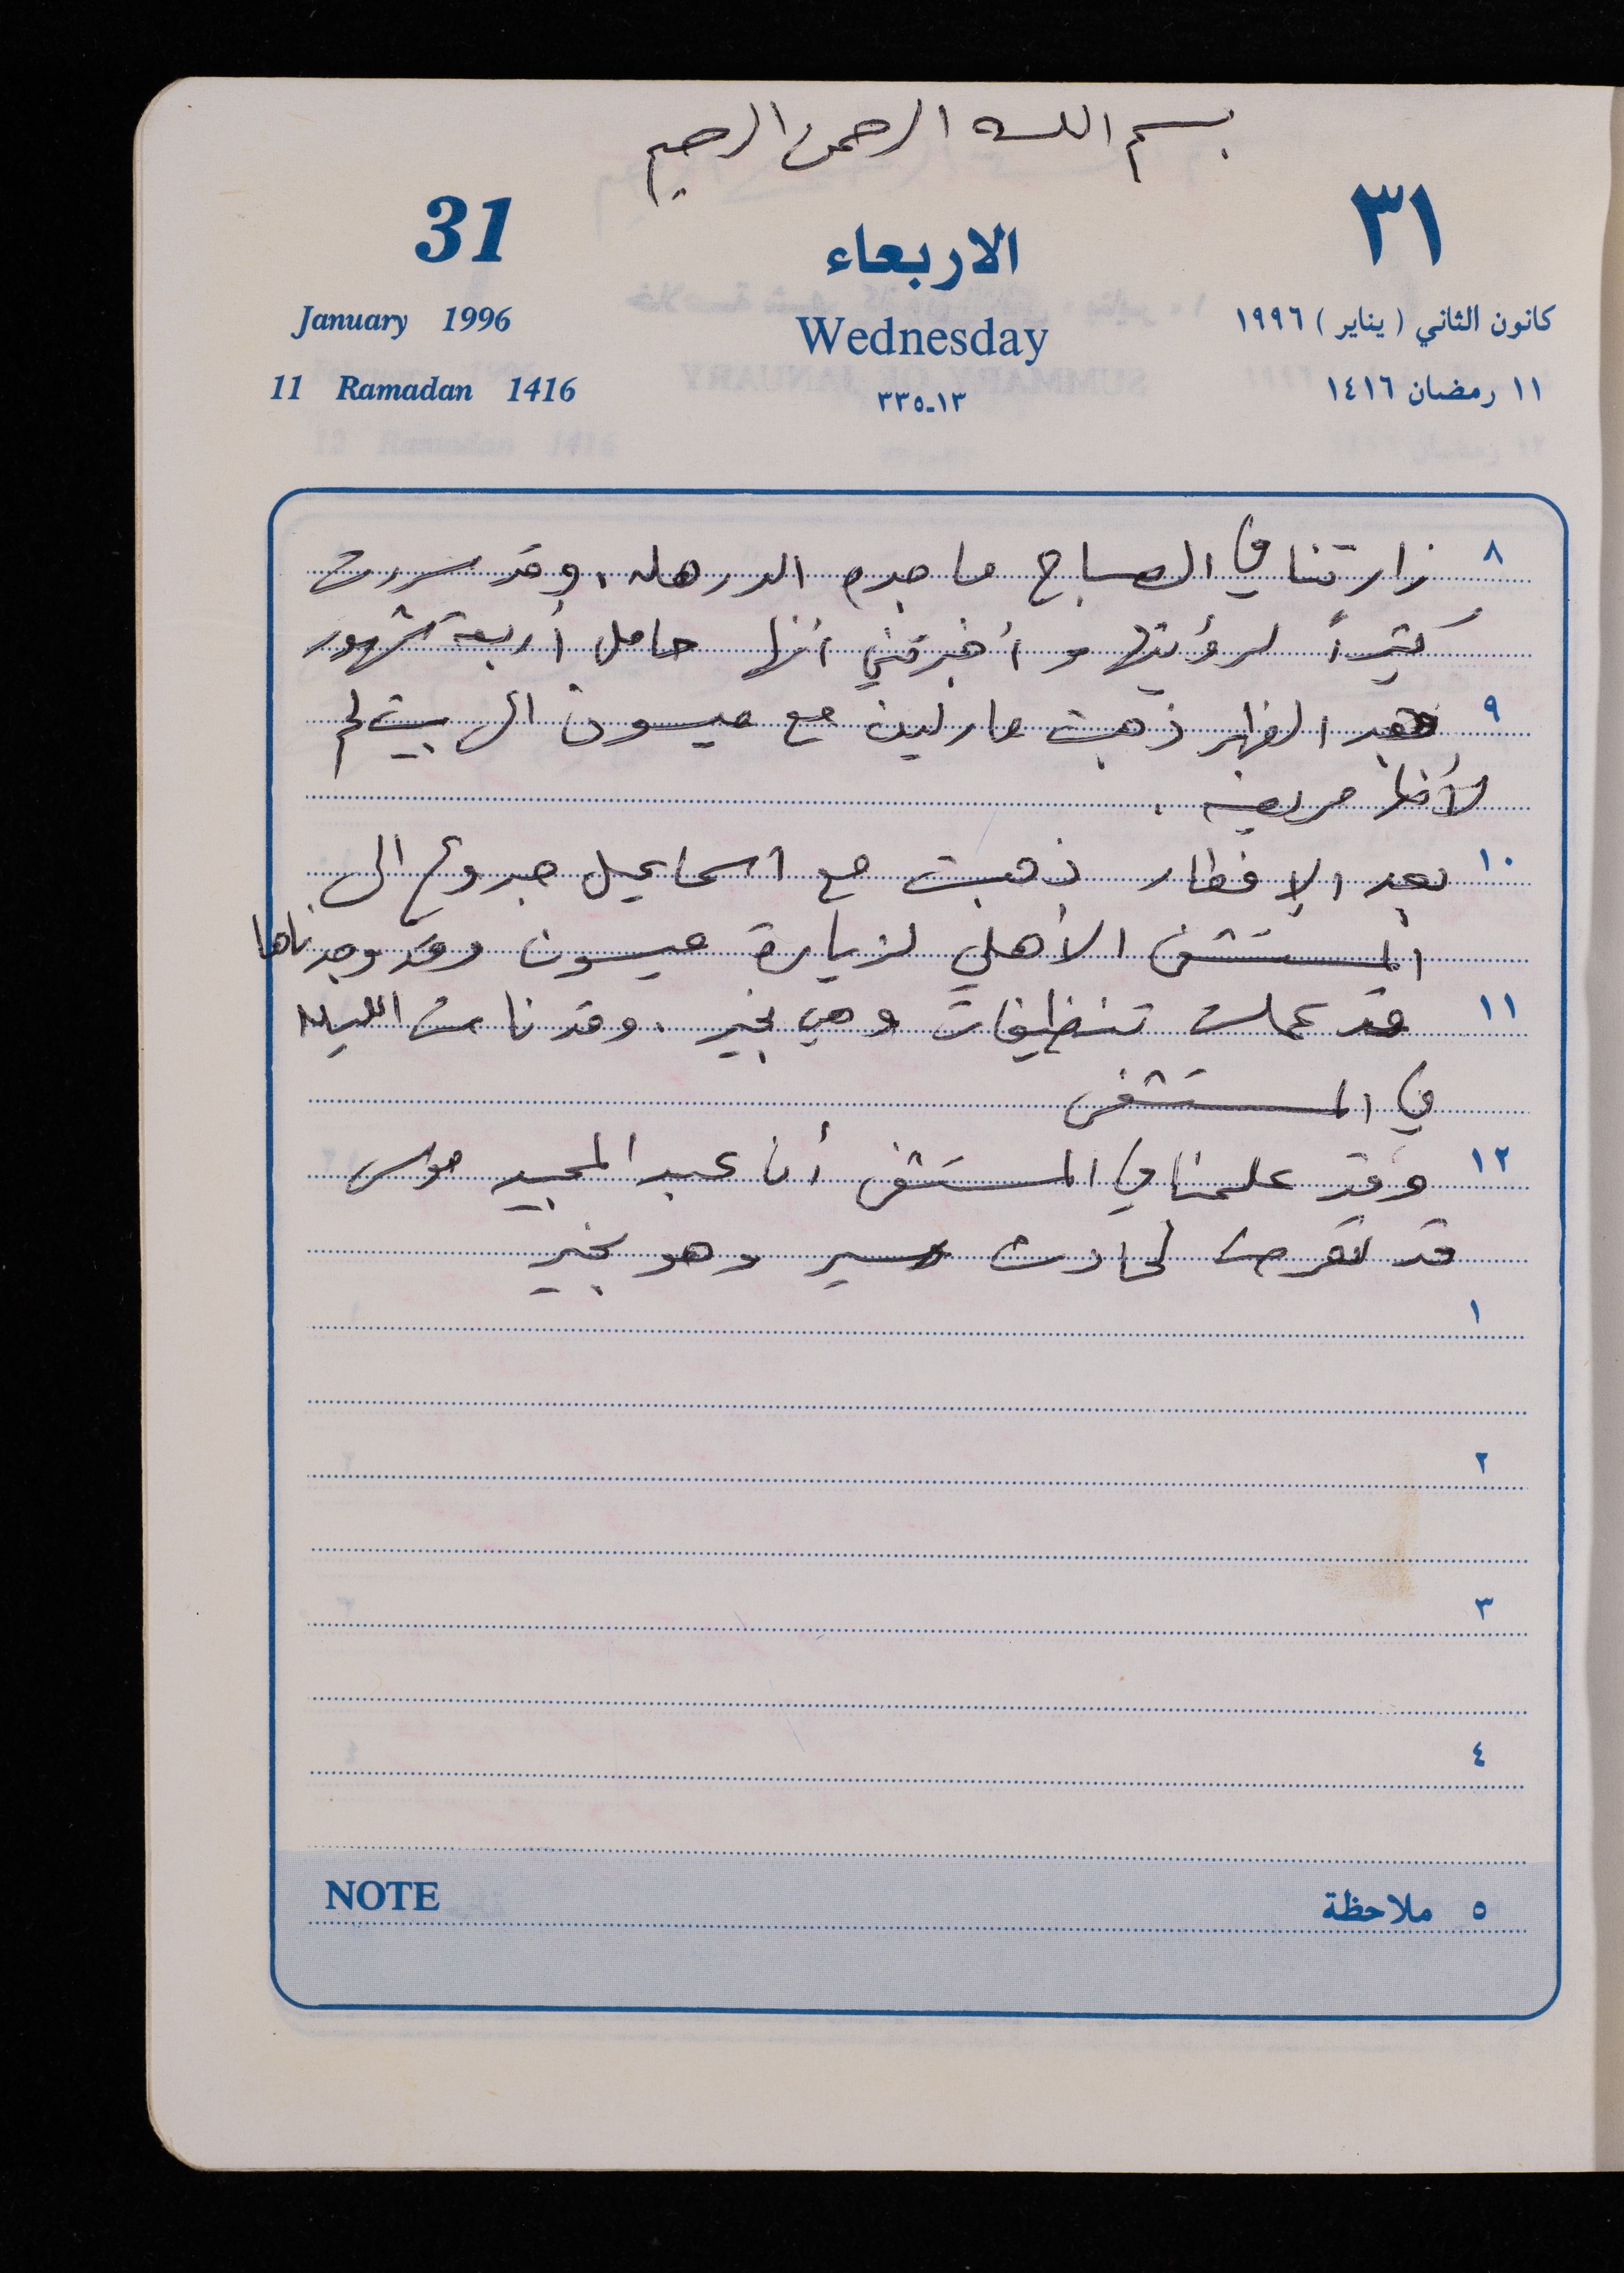 بسم الله الرحمن الرحيم
31
الاربعاء
٣١
January 1996
Wednesday
كانون الثاني ( يناير ) ١٩٩٦
11 Ramadan 1416
١٣-٣٣٥
١١ رمضان ١٤١٦
٨ زارتنا في الصباح ماجدة وقد سررت
كثيراً لرؤيتها و أخبرتني أنها حامل أربعة شهور
٩ بعد الظهر ذهبت مارلين مع ميسون الى بيت لحم
لأنها مريضة .
١٠ بعد الإفطار ذهبت مع اسماعيل الى
المستشفى الأهلي لزيارة ميسون وقد وجدناها
١١ قد عملت تنظيفات وهي بخير . وقد نامت الليلة
في المستشفى
١٢ وقد علمنا في المستشفى أن عبد المجيد موسى
قد تعرض لحادث سير وهو بخير
١
٢
٣
٤
NOTE
٥ ملاحظة